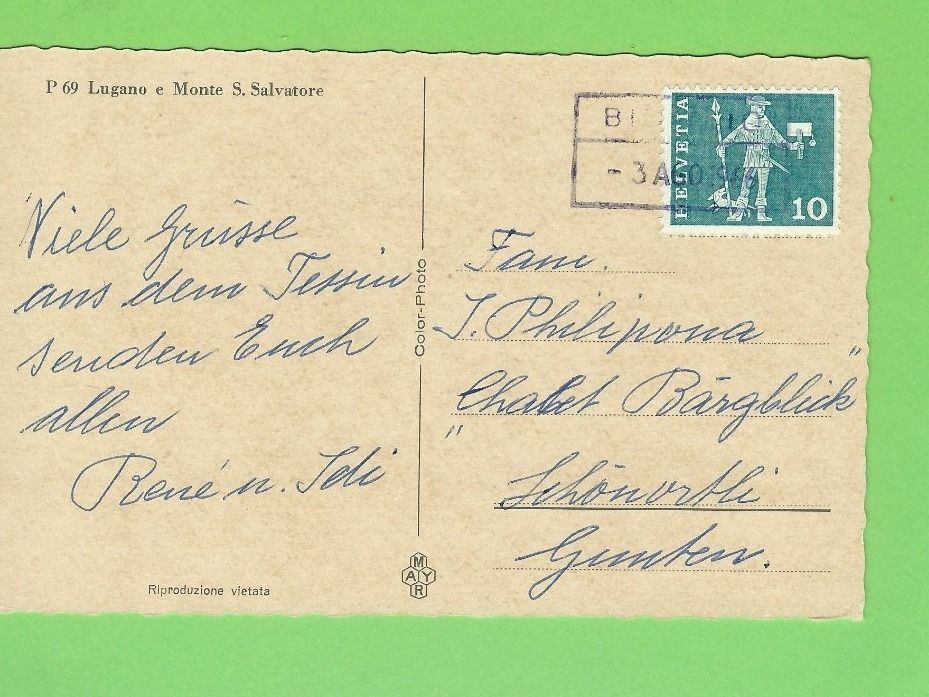 P 69 Lugano e Monte S. Salvatore
Viele Grüsse
aus dem Tessin
senden Euch
allen
René u. Idi
Riproduzione vietata
Color-Photo
MAYR
HELVETIA
10
- 3 AGO. 
Fam.
J. Philipona
„Chalet Bärgblick"
Schönörtli
Gunten.